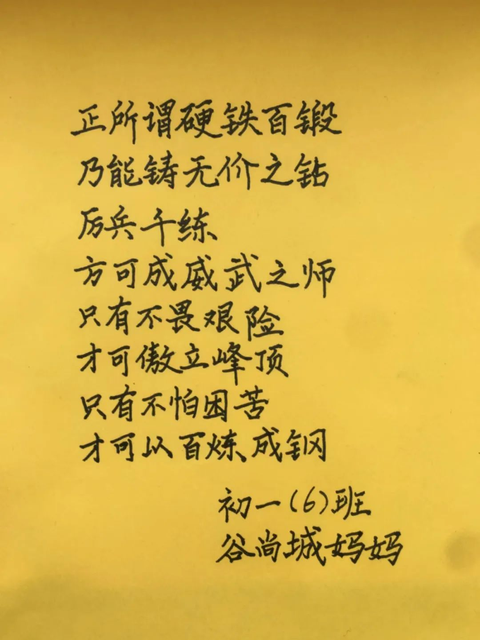 正所谓硬铁百锻
乃能铸无价之钻
厉兵千练
方可成威武之师
只有不畏艰险
才可傲立峰顶
只有不怕困苦
才可以百炼成钢
初一(6)班
谷尚城妈妈